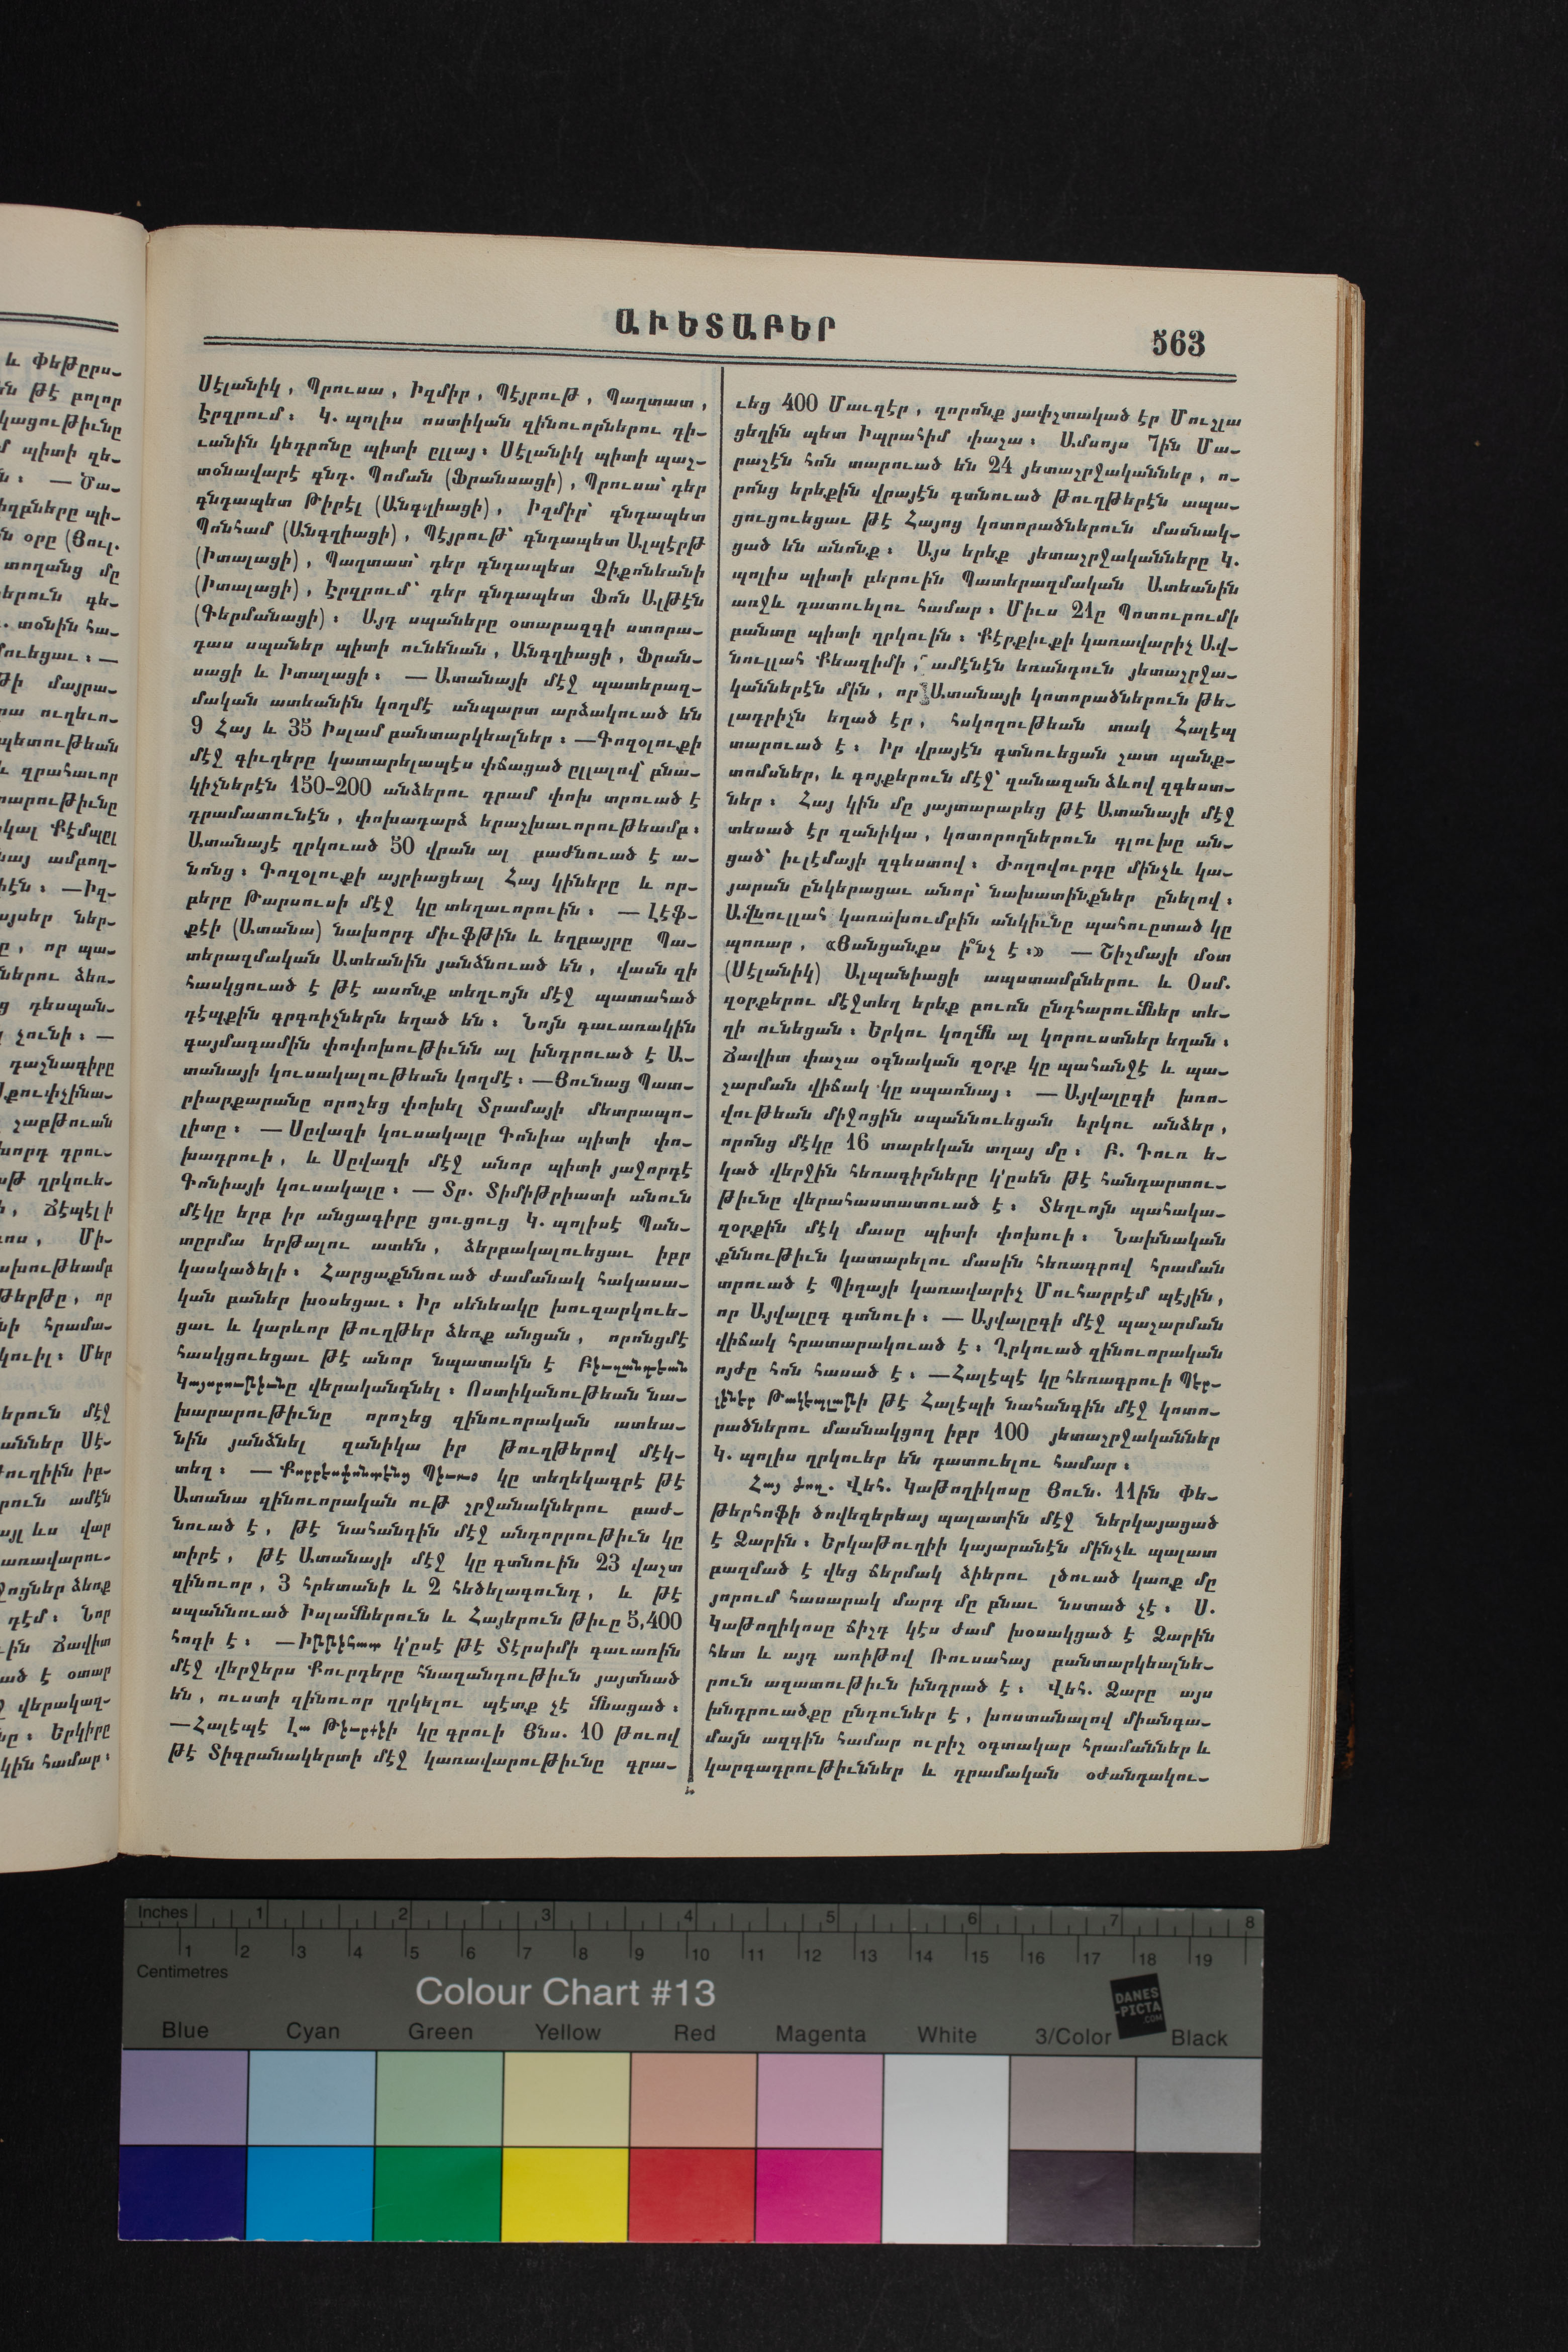 ԱՒԵՏԱԲԵՐ
563
Սէլանիկ, Պրուսա, Իզմիր, Պէյրութ, Պաղտատ,
Էրզրում։ Կ. պոլիս ոստիկան զինուորներու դի-
ւանին կեդրոնը պիտի ըլլայ։ Սէլանիկ պիտի պաչ-
տօնավարէ գնդ. Պոման (Ֆրանսացի), Պրուսա՝ դեր
գնդապետ Թիրէլ (Անգլիացի), Իզմիր՝ գնդապետ
Պոնհամ (Անգղիացի), Պէյրութ՝ գնդապետ Ալպէրթ
(Իտալացի), Պաղտատ՝ դեր գնդապետ Չիքոնեանի
(Իտալացի), Էրզրում՝ դեր գնդապետ Ֆոն Ալթէն
(Գերմանացի)։ Այդ սպաները օտարազգի ստորա-
դաս սպաներ պիտի ունենան, Անգղիացի, Ֆրան-
սացի և Իտալացի։ — Ատանայի մէջ պատերազ-
մական ատեանին կողմէ անպարտ արձակուած են
9 Հայ և 35 Իսլամ բանտարկեալներ։ —Գոզօլուքի
մէջ գիւղերը կատարելապէս փճացած ըլլալով՝ բնա-
կիչներէն 150-200 անձերու դրամ փոխ տրուած է
դրամատունէն, փոխադարձ երաշխաւորութեամբ։
Ատանայէ ղրկուած 50 վրան ալ բաժնուած է ա-
նոնց։ Գոզօլուքի այրիացեալ Հայ կիները և որ-
բերը Թարսուսի մէջ կը տեղաւորուին։ — Լէֆ-
քէի (Ատանա) նախորդ միւֆթին և եղբայրը Պա-
տերազմական Ատեանին յանձնուած են, վասն զի
հասկցուած է թէ ասոնք տեղւոյն մէջ պատահած
դէպքին գրգռիչներն եղած են։ Նոյն գաւառակին
գայմագամին փոփոխութիւնն ալ խնդրուած է Ա-
տանայի կուսակալութեան կողմէ։ —Յունաց Պատ-
րիարքարանը որոշեց փոխել Տրամայի մետրապո-
լիտը։ — Սըվազի կուսակալը Գոնիա պիտի փո-
խադրուի, և Սըվազի մէջ անոր պիտի յաջորդէ
Գոնիայի կուսակալը։ — Տր. Տիմիթրիատի անուն
մէկը երբ իր անցագիրը ցուցուց Կ. պոլիսէ Պան-
տըրմա երթալու ատեն, ձերբակալուեցաւ իբր
կասկածելի։ Հարցաքննուած ժամանակ հակասա-
կան բաներ խօսեցաւ։ Իր սենեակը խուզարկուե-
ցաւ և կարևոր թուղթեր ձեռք անցան, որոնցմէ
հասկցուեցաւ թէ անոր նպատակն է Բիւզանդեան
Կայսրութիւնը վերականգնել։ Ոստիկանութեան նա-
խարարութիւնը որոշեց զինուորական ատեա-
նին յանձնել զանիկա իր թուղթերով մէկ-
տեղ։ — Քորրէսփոնտէնց Պիւռօ կը տեղեկագրէ թէ
Ատանա զինուորական ութ շրջանակներու բաժ-
նուած է, թէ նահանգին մէջ անդորրութիւն կը
տիրէ, թէ Ատանայի մէջ կը գտնուին 23 վաշտ
զինուոր, 3 հրետանի և 2 հեծելագունդ, և թէ
սպաննուած Իսլամներուն և Հայերուն թիւը 5,400
հոգի է։ —Իթթիհատ կ՚ըսէ թէ Տէրսիմի գաւառին
մէջ վերջերս Քուրդերը հնազանդութիւն յայտնած
են, ուստի զինուոր ղրկելու պէտք չէ մնացած։
—Հալէպէ Լա Թիւրքիի կը գրուի Յնս. 10 թուով
թէ Տիգրանակերտի մէջ կառավարութիւնը գրա-
ւեց 400 Մաւզէր, զորոնք յափշտակած էր Մուշլա
ցեղին պետ Իպրահիմ փաշա։ Ամսոյս 7ին Մա-
րաշէն հոն տարուած են 24 յետաշրջականներ, ո-
րոնց երեքին վրայէն գտնուած թուղթերէն ապա-
ցուցուեցաւ թէ Հայոց կոտորածներուն մասնակ-
ցած են անոնք։ Այս երեք յետաշրջականները Կ.
պոլիս պիտի բերուին Պատերազմական Ատեանին
առջև դատուելու համար։ Միւս 21ը Պոտուրումի
բանտը պիտի ղրկուին։ Քէրքիւքի կառավարիչ Ավ-
նուլլահ Քեազիմի, ամէնէն եռանդուն յետաշրջա-
կաններէն մին, որ Ատանայի կոտորածներուն թե-
լադրիչն եղած էր, հսկողութեան տակ Հալէպ
տարուած է։ Իր վրայէն գտնուեցան շատ պանք-
տոմսներ, և գոյքերուն մէջ՝ զանազան ձևով զգեստ-
ներ։ Հայ կին մը յայտարարեց թէ Ատանայի մէջ
տեսած էր զանիկա, կոտորողներուն գլուխը ան-
ցած՝ իւլէմայի զգեստով։ Ժողովուրդը մինչև կա-
յարան ընկերացաւ անոր՝ նախատինքներ ընելով։
Ավնուլլահ կառախումբին անկիւնը պահուըտած կը
պոռար, «Յանցանքս ի՞նչ է։» — Շիշմայի մօտ
(Սէլանիկ) Ալպանիացի ապստամբներու և Օսմ.
զօրքերու մէջտեղ երեք բուռն ընդհարումներ տե-
ղի ունեցան։ Երկու կողմն ալ կորուստներ եղան։
Ճավիտ փաշա օգնական զօրք կը պահանջէ և պա-
շարման վիճակ կը սպառնայ։ — Այվալըգի խռո-
վութեան միջոցին սպաննուեցան երկու անձեր,
որոնց մէկը 16 տարեկան տղայ մը։ Բ. Դուռ ե-
կած վերջին հեռագիրները կ՚ըսեն թէ հանդարտու-
թիւնը վերահաստատուած է։ Տեղւոյն պահակա-
զօրքին մէկ մասը պիտի փոխուի։ Նախնական
քննութիւն կատարելու մասին հեռագրով հրաման
տրուած է Պիղայի կառավարիչ Մուհարրէմ պէյին,
որ Այվալըգ գտնուի։ — Այվալըգի մէջ պաշարման
վիճակ հրատարակուած է։ Ղրկուած զինուորական
ոյժը հոն հասած է։ —Հալէպէ կը հեռագրուի Պեր-
լինէր Թակեպլաթի թէ Հալէպի նահանգին մէջ կոտո-
րածներու մասնակցող իբր 100 յետաշրջականներ
Կ. պոլիս ղրկուեր են դատուելու համար։
Հայ ժող. Վեհ. Կաթողիկոսը Յուն. 11ին Փե-
թերհոֆի ծովեզերեայ պալատին մէջ ներկայացած
է Ձարին։ Երկաթուղիի կայարանէն մինչև պալատ
բազմած է վեց ճերմակ ձիերու լծուած կառք մը
յորում հասարակ մարդ մը բնաւ նստած չէ։ Ս.
Կաթողիկոսը ճիշդ կէս ժամ խօսակցած է Ձարին
հետ և այդ առիթով Ռուսահայ բանտարկեալնե-
րուն ազատութիւն խնդրած է։ Վեհ. Ձարը այս
խնդրուածքը ընդուներ է, խոստանալով միանգա-
մայն ազգին համար ուրիշ օգտակար հրամաններ և
կարգադրութիւններ և դրամական օժանդակու-
Inches 1 2 3 4 5 6 7 8
1 2 3 4 5 6 7 8 9 10 11 12 13 14 15 16 17 18 19
Centimetres
Colour Chart #13
DANES
-PICTA
.COM
Blue Cyan Green Yellow Red Magenta White 3/Color Black